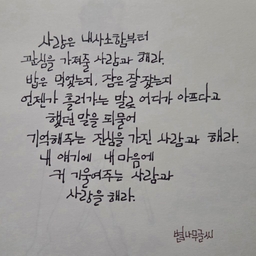 사랑은 내 사소함부터
관심을 가져줄 사람과 해라.
밥은 먹었는지, 잠은 잘 잤는지
언젠가 흘러가는 말로 어디가 아프다고
했던 말을 되물어
기억해주는 진심을 가진 사람과 해라.
내 얘기에 내 마음에
귀 기울여주는 사람과
사랑을 해라.
별나무글씨